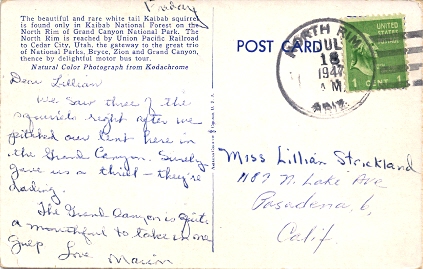 Friday
The beautiful and rare white tail Kaibab squirrel
is found only in Kaibab National Forest on the
North Rim of Grand Canyon National Park. The
North Rim is reached by Union Pacific Railroad
to Cedar City, Utah, the gateway to the great trio
of National Parks, Bryce, Zion and Grand Canyon,
thence by delightful motor bus tour.
Natural Color Photograph from Kodachrome
Dear Lillian
We saw three of the
squirrels right after we
pitched our tent here in
the Grand Canyon. Surely
gave us a thrill - they're
darling.
The Grand Canyon is quite
a mouthful to take in one
gulp Love Marion
POST CARD
NORTH RIM
JUL
18
1947
M
ARIZ.
UNITED
STATES
1 CENT 1
Miss Lillian Strickland
1187 N. Lake Ave
Pasadena 6,
Calif.